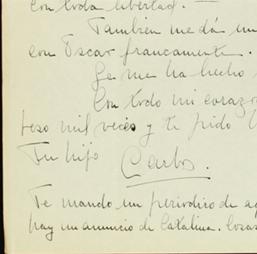 con toda libertad. —
Tambien me dá mu
con Oscar francamente.
Se me ha hecho
Con todo mi corazon
beso mil veces y te pido
Tu hijo
Carlos.
Te mando un periodico de aq
hay un anuncio de Catalina. Cosas